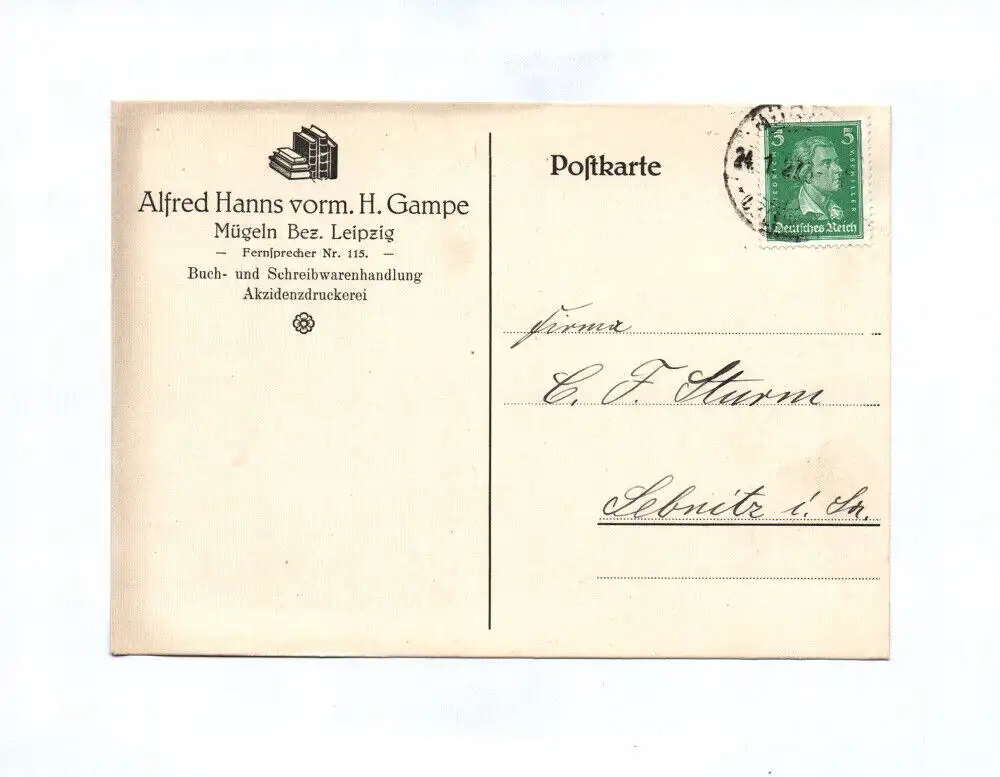 Alfred Hanns vorm. H. Gampe
Mügeln Bez. Leipzig
— Fernſprecher Nr. 115. —
Buch- und Schreibwarenhandlung
Akzidenzdruckerei
Poſtkarte
5 5
Deutſches Reich
Firma
C. F. Sturm
Sebnitz i. Sa.